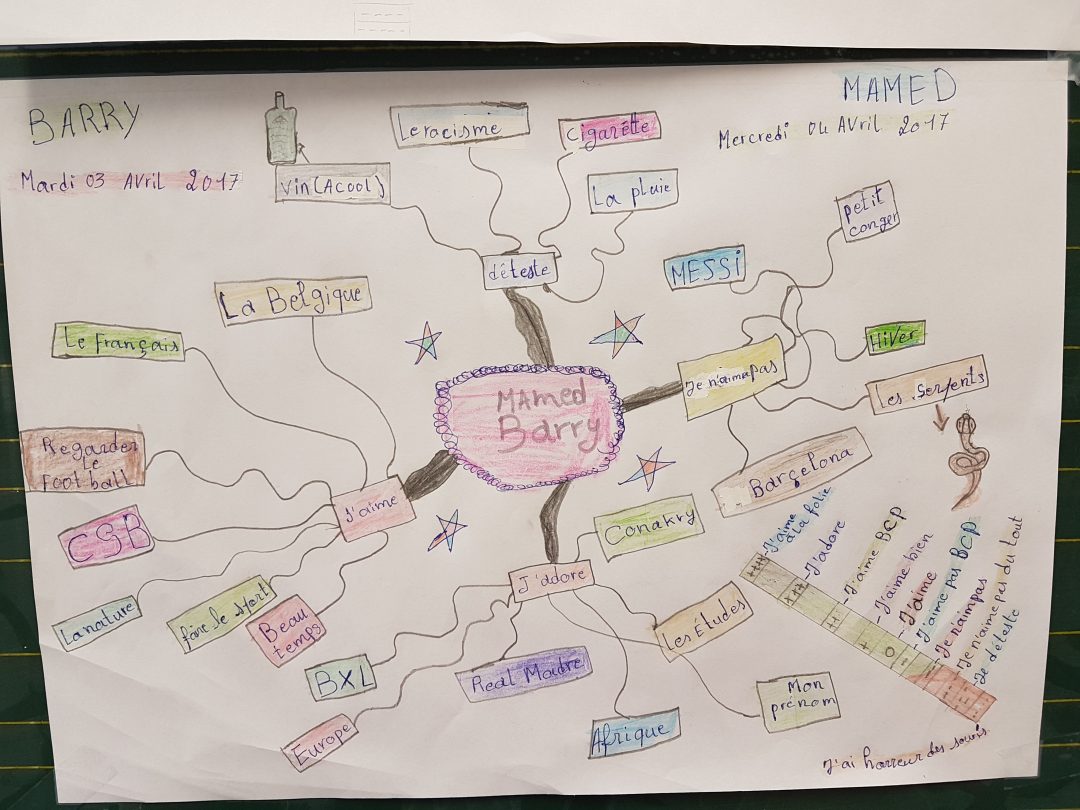 BARRY
Mardi 03 Avril 2017
MAMED
Mercredi 04 AVril 2017
Vin (Acool)
Le racisme
Cigarétte
La pluie
déteste
MESSi
petit
conger
HiVer
Les Serpents
Je n'aime pas
Barçelona
La Belgique
Le français
Regarder
le
Foot ball
CSB
La nature
faire le sport
Beau
temps
J'aime
MAmed
Barry
J'adore
Conakry
Les Études
Mon
prénom
Afrique
Real Madre
BXL
Europe
J'aime
à la folie
J'adore
J'aime BCP
J'aime bien
J'aime
J'aime pas BCP
Je n'aimpas
Je n'aime pas du tout
Je déteste
++++
+++
++
+
0
J'ai horreur des souris